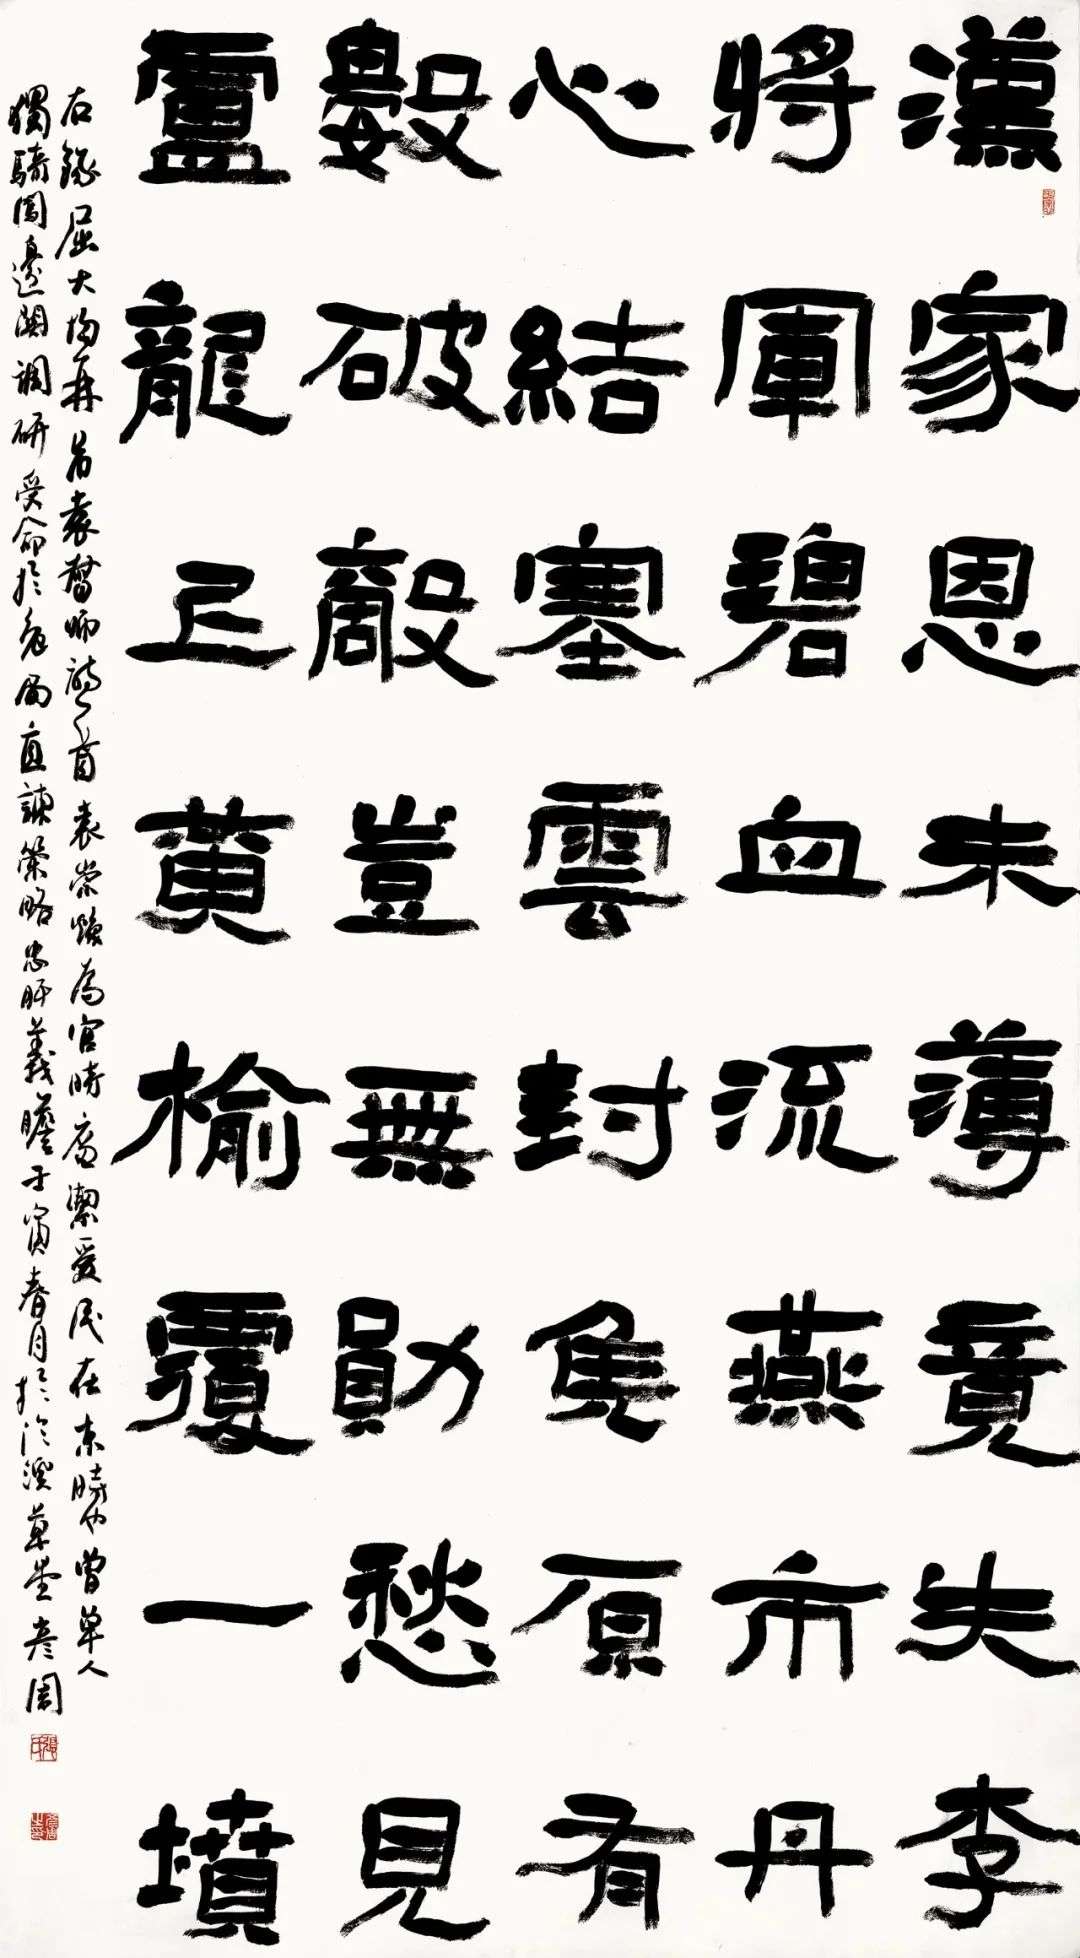 漢家恩未薄竟失李
將軍碧血流燕市丹
心結塞雲封侯原有
數破敵豈無勛愁見
盧龍上黃榆覆一墳
右錄屈大均再弔袁督師詩一首袁崇煥為官時廉潔愛民在京時也曾單人
獨騎闖邊關調研受命於危局直諫策略忠肝義膽壬寅春月於溪草堂